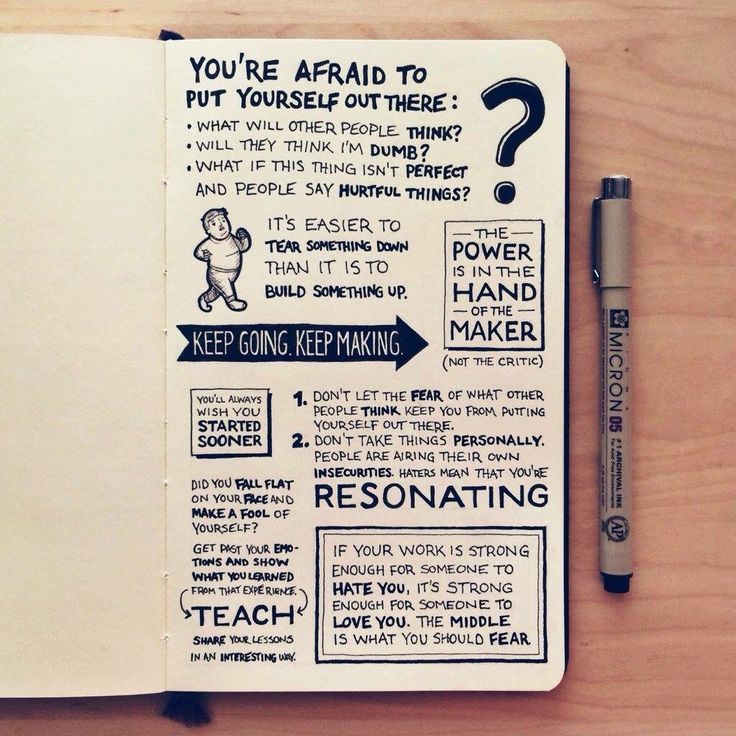 YOU'RE AFRAID TO
PUT YOURSELF OUT THERE:
• WHAT WILL OTHER PEOPLE THINK?
• WILL THEY THINK I'M DUMB?
• WHAT IF THIS THING ISN'T PERFECT
AND PEOPLE SAY HURTFUL THINGS?
?
IT'S EASIER TO
TEAR SOMETHING DOWN
THAN IT IS TO
BUILD SOMETHING UP.
— THE —
POWER
IS IN THE
HAND
— OF THE —
MAKER
(NOT THE CRITIC)
KEEP GOING. KEEP MAKING.
YOU'LL ALWAYS
WISH YOU
STARTED
SOONER
1. DON'T LET THE FEAR OF WHAT OTHER
PEOPLE THINK KEEP YOU FROM PUTTING
YOURSELF OUT THERE.
2. DON'T TAKE THINGS PERSONALLY.
PEOPLE ARE AIRING THEIR OWN
INSECURITIES. HATERS MEAN THAT YOU'RE
RESONATING
DID YOU FALL FLAT
ON YOUR FACE AND
MAKE A FOOL OF
YOURSELF?
GET PAST YOUR EMO-
TIONS AND SHOW
WHAT YOU LEARNED
FROM THAT EXPERIENCE.
TEACH
SHARE YOUR LESSONS
IN AN INTERESTING WAY.
IF YOUR WORK IS STRONG
ENOUGH FOR SOMEONE TO
HATE YOU, IT'S STRONG
ENOUGH FOR SOMEONE TO
LOVE YOU. THE MIDDLE
IS WHAT YOU SHOULD FEAR
MICRON 05
#1 ARCHIVAL INK
For Acid-Free Environments
AP